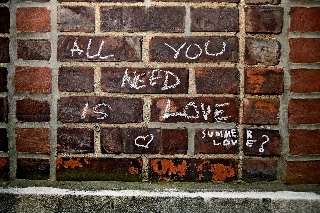 ALL YOU
NEED
IS LOVE
SUMMER
LOVE?